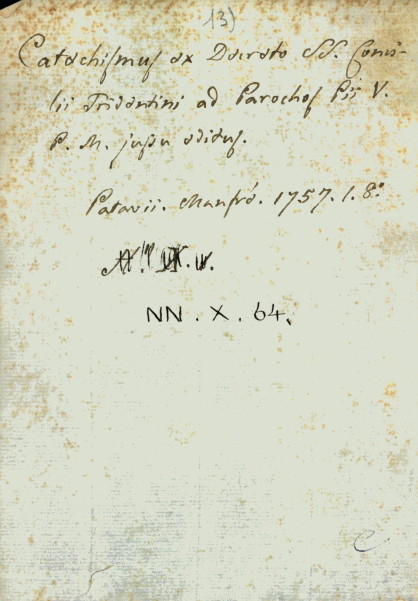 13)
Catechismus ex Decreto SS. Conci-
lii Tridentini ad Parochos Pii V.
P. M. jussu editus.
Patavii. Manfré. 1757. 1. 8º
NN. X. 64.